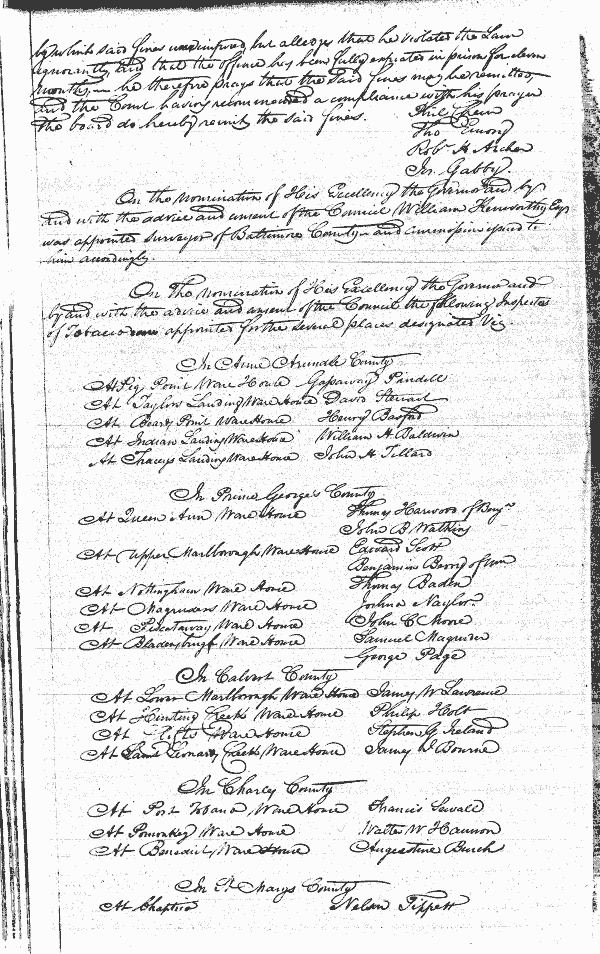 by which said fines were imposed, but alledges that he violated the Law
ignorantly and that the offence has been fully expiated in prison for eleven
months, he therefore prays that the said fines may be remitted
and the Court having recommended a compliance with his prayer
the board do hereby remit the said fines.
Tho Emory
Robt H Archer
Jn. Gabby.
On the nomination of His Excellency the Governor and by
and with the advice and consent of the Council William
was appointed surveyor of Baltimore County and commission issued to
him accordingly.
On The nomination of His Excellency the Governor and
by and with the advice and consent of the Council the following Inspectors
of Tobacco were appointed for the several places designated Viz
In Anne Arundle County
At Pig Point Ware House Gassaway Pindell
At Taylors Landing Ware House David Steuart
At Beard Point Ware House Henry Basford
At Indian Landing Ware House William H Baldwin
At Traceys Landing Ware House John H Tillard
In Prince George's County
At Queen Ann Ware House Thomas Harwood of Benjn
John B Watkins
At Upper Marlborough Ware House Edward Scott
Benjamin Berry of
At Nottingham Ware House Thomas Baden
At Magruders Ware House Joshua Naylor
At Piscataway Ware House John C Moore
At Bladensburgh Ware House Samuel Magruder
George Page
In Calvert County
At Lower Marlborough Ware House James W Lawrence
At Hunting Creek Ware House Philip Holt
At Ware House Stephen G Ireland
At Saint Leonards Creek Ware House James W Bourne
In Charles County
At Port Tobacco Ware House Francis Sewall
At Pomonkey Ware House Walter W Hannon
At Benedict Ware House Augustine Burch
In St Marys County
At Chaptico Nelson Tippett